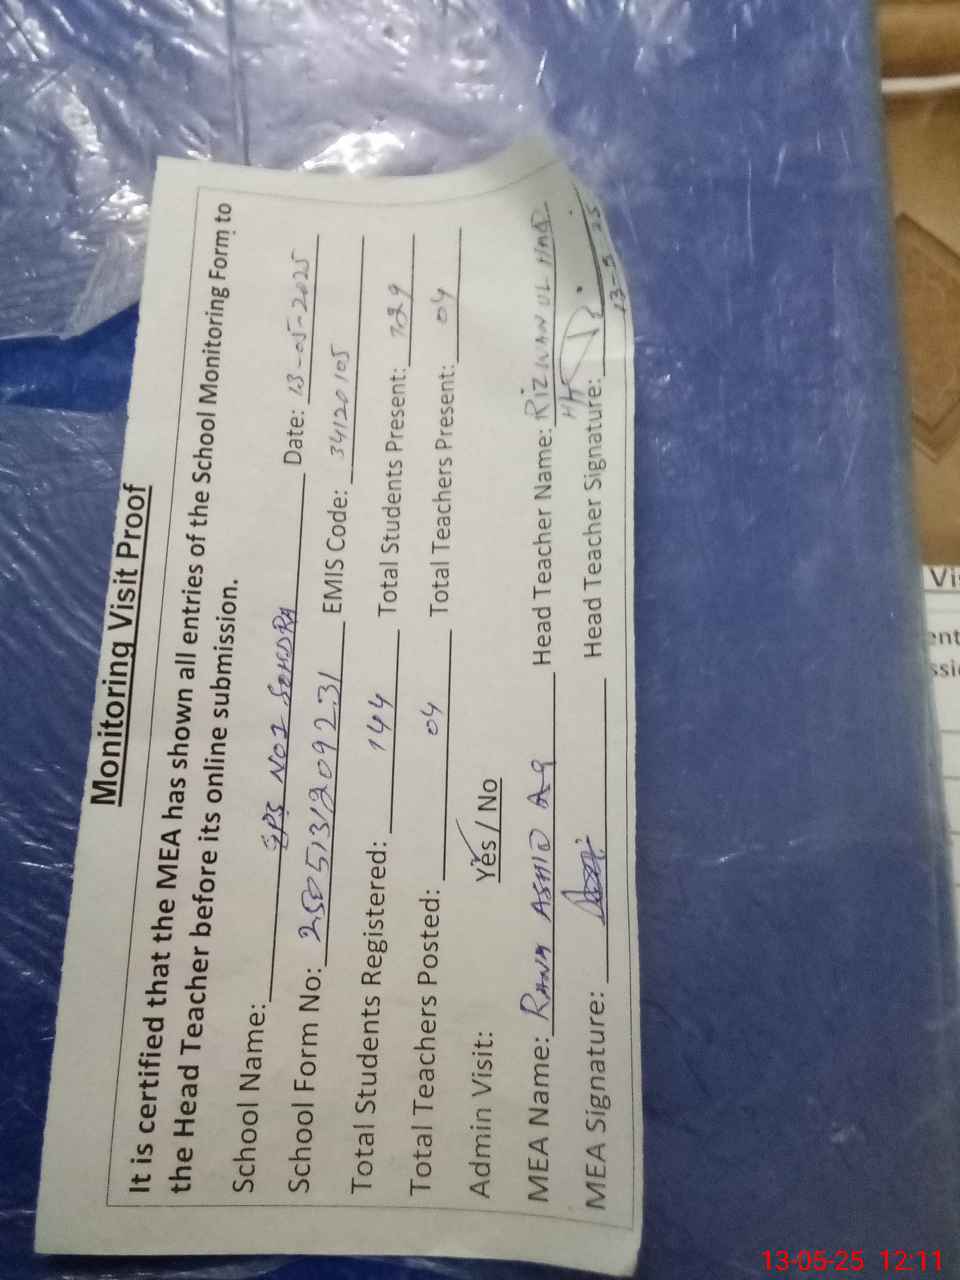 Monitoring Visit Proof
It is certified that the MEA has shown all entries of the School Monitoring Form to
the Head Teacher before its online submission.
School Name: GPS NO2 Date: 13-05-2025
School Form No: 2505131209231 EMIS Code: 34120105
Total Students Registered: 144 Total Students Present: 129
Total Teachers Posted: 04 Total Teachers Present: 04
Admin Visit: Yes / No
MEA Name: RANA Head Teacher Name: RIZWAN UL HAQ
MEA Signature: Head Teacher Signature:
13-5-25
13-05-25 12:11